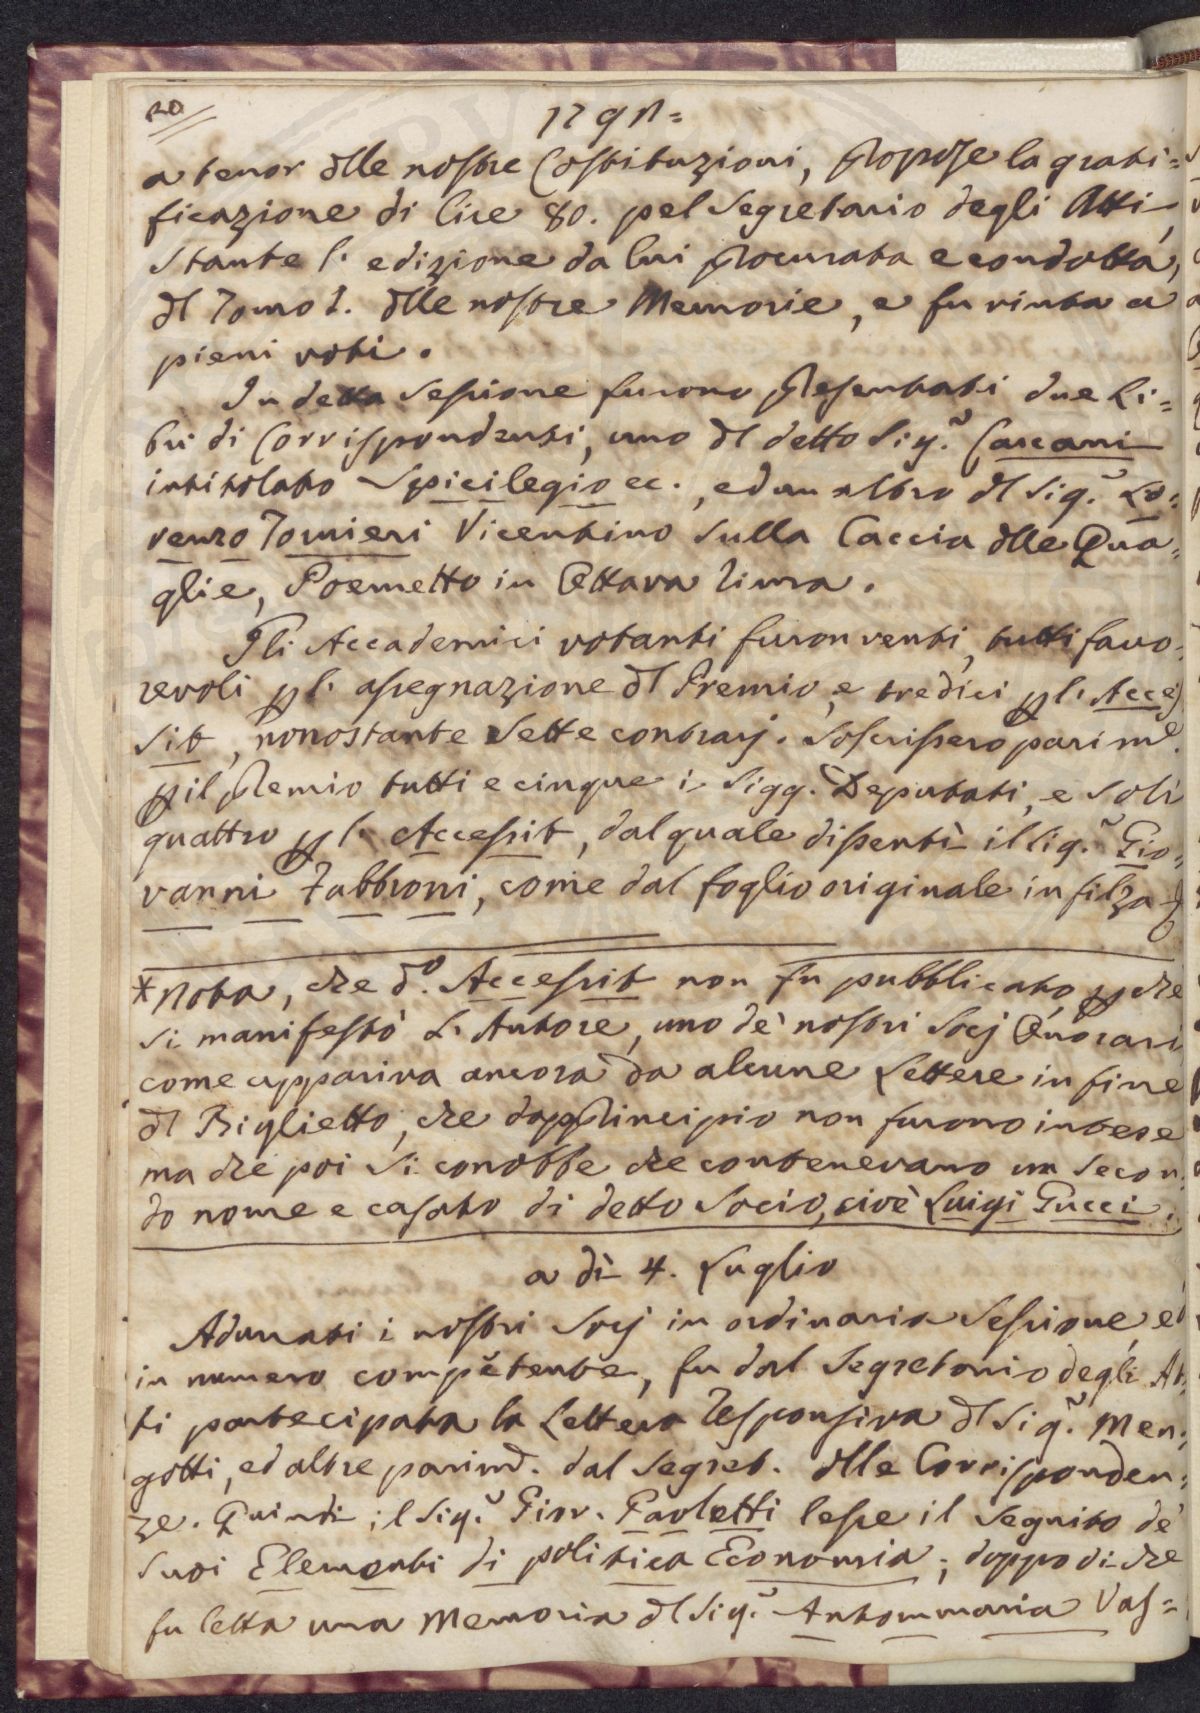 20
1791=
a tenor dlle nostre Costituzioni, propose la grati=
ficazione di lire 80. pel Segretario degli Atti,
stante l'edizione da lui procurata e condotta,
dl Tomo I. dlle nostre Memorie, e fu vinta a
pieni voti.
In detta Sessione furono presentati due Li=
bri di Corrispondenti, uno dl detto Sig.r Carcani
intitolato Spicilegio ec., ed un altro dl Sig.r Lo=
renzo Tornieri Vicentino sulla Caccia dlle Qua=
glie, Poemetto in Ottava rima.
Gli Accademici votanti furon venti, tutti favo=
revoli p l'assegnazione dl Premio, e tredici p l'Acces
sit, nonostante sette contrarj. Soscrissero parim.e
p il premio tutti e cinque i Sigg.i Deputati, e soli
quattro p l'Accessit, dal quale dissentì il Sig.r Gio=
vanni Fabbroni, come dal foglio originale in filza
* Nota, che d.o Accessit non fu pubblicato pche
si manifestò l'Autore, uno de' nostri Socj Onorarj
come appariva ancora da alcune Lettere in fine
dl Biglietto, che dapprincipio non furono intese
ma che poi si conobbe che contenevano un secon=
do nome e casato di detto Socio, cioè Luigi Pucci.
a dì 4. Luglio
Adunati i nostri Socj in ordinaria Sessione, e
in numero competente, fu dal Segretario degli At=
ti partecipata la Lettera responsiva dl Sig.r Men=
gotti, ed altre parimd. dal Segret. dlle Corrisponden=
ze. Quindi il Sig.r Giov. Paoletti lesse il seguito de'
suoi Elementi di politica Economia; doppo di che
fu letta una Memoria dl Sig.r Antommaria Vas=